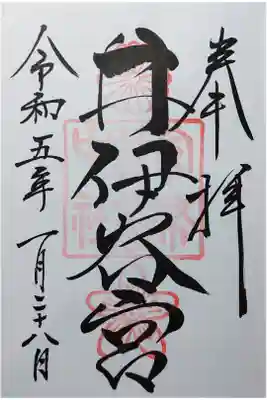 奉拝
井伊谷宮
令和五年 一月二十八日